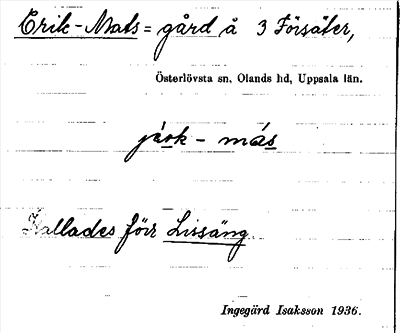 Erik-Mats= gård å 3 Försäter,
Österlövsta sn, Olands hd, Uppsala län.
- más
Kallades förr Lissäng.
Ingegärd Isaksson 1936.